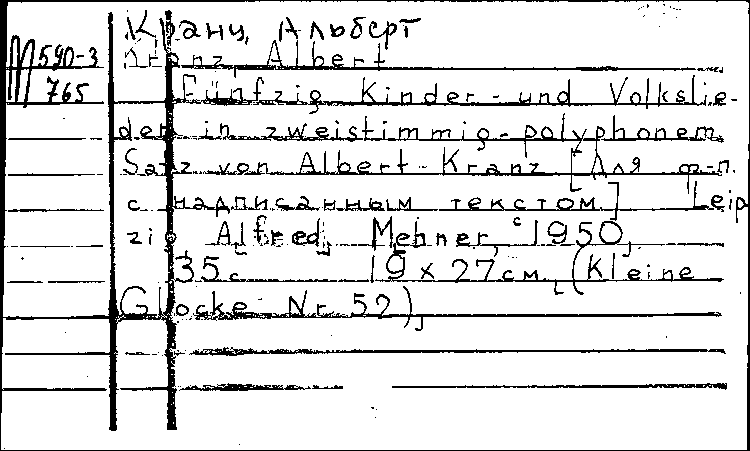 Кранц, Альберт
М 590-3
765
Kranz, Albert
Fünfzig Kinder- und Volkslie-
der in zweistimmig-polyphonem
Satz von Albert Kranz [Для ф-п.
с надписанным текстом] Leip
zig, Alfred Mehner, c 1950,
35 с. 19 x 27 см, (Kleine
Glocke Nr 52),